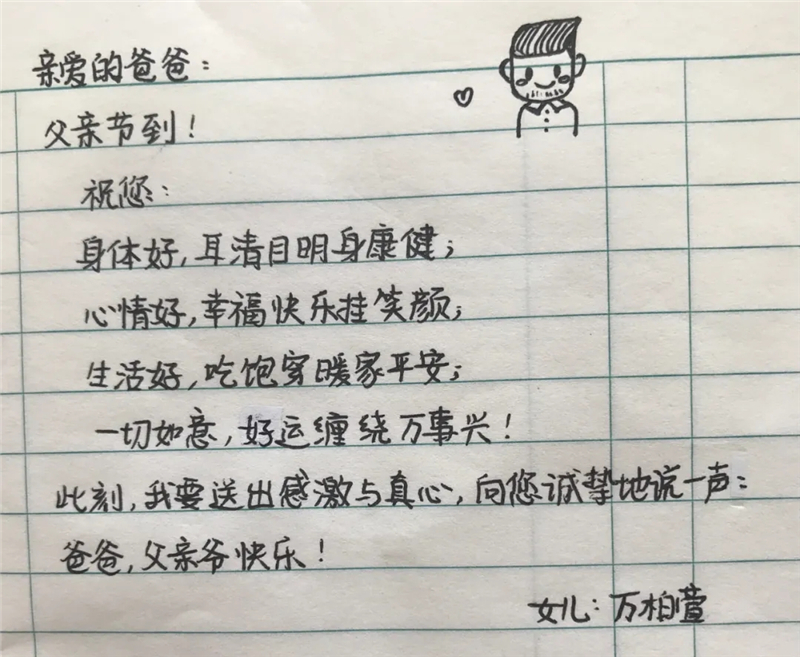 亲爱的爸爸：
父亲节到！
祝您：
身体好，耳清目明身康健；
心情好，幸福快乐挂笑颜；
生活好，吃饱穿暖家平安；
一切如意，好运缠绕万事兴！
此刻，我要送出感激与真心，向您诚挚地说一声：
爸爸，父亲爷快乐！
女儿：万柏萱